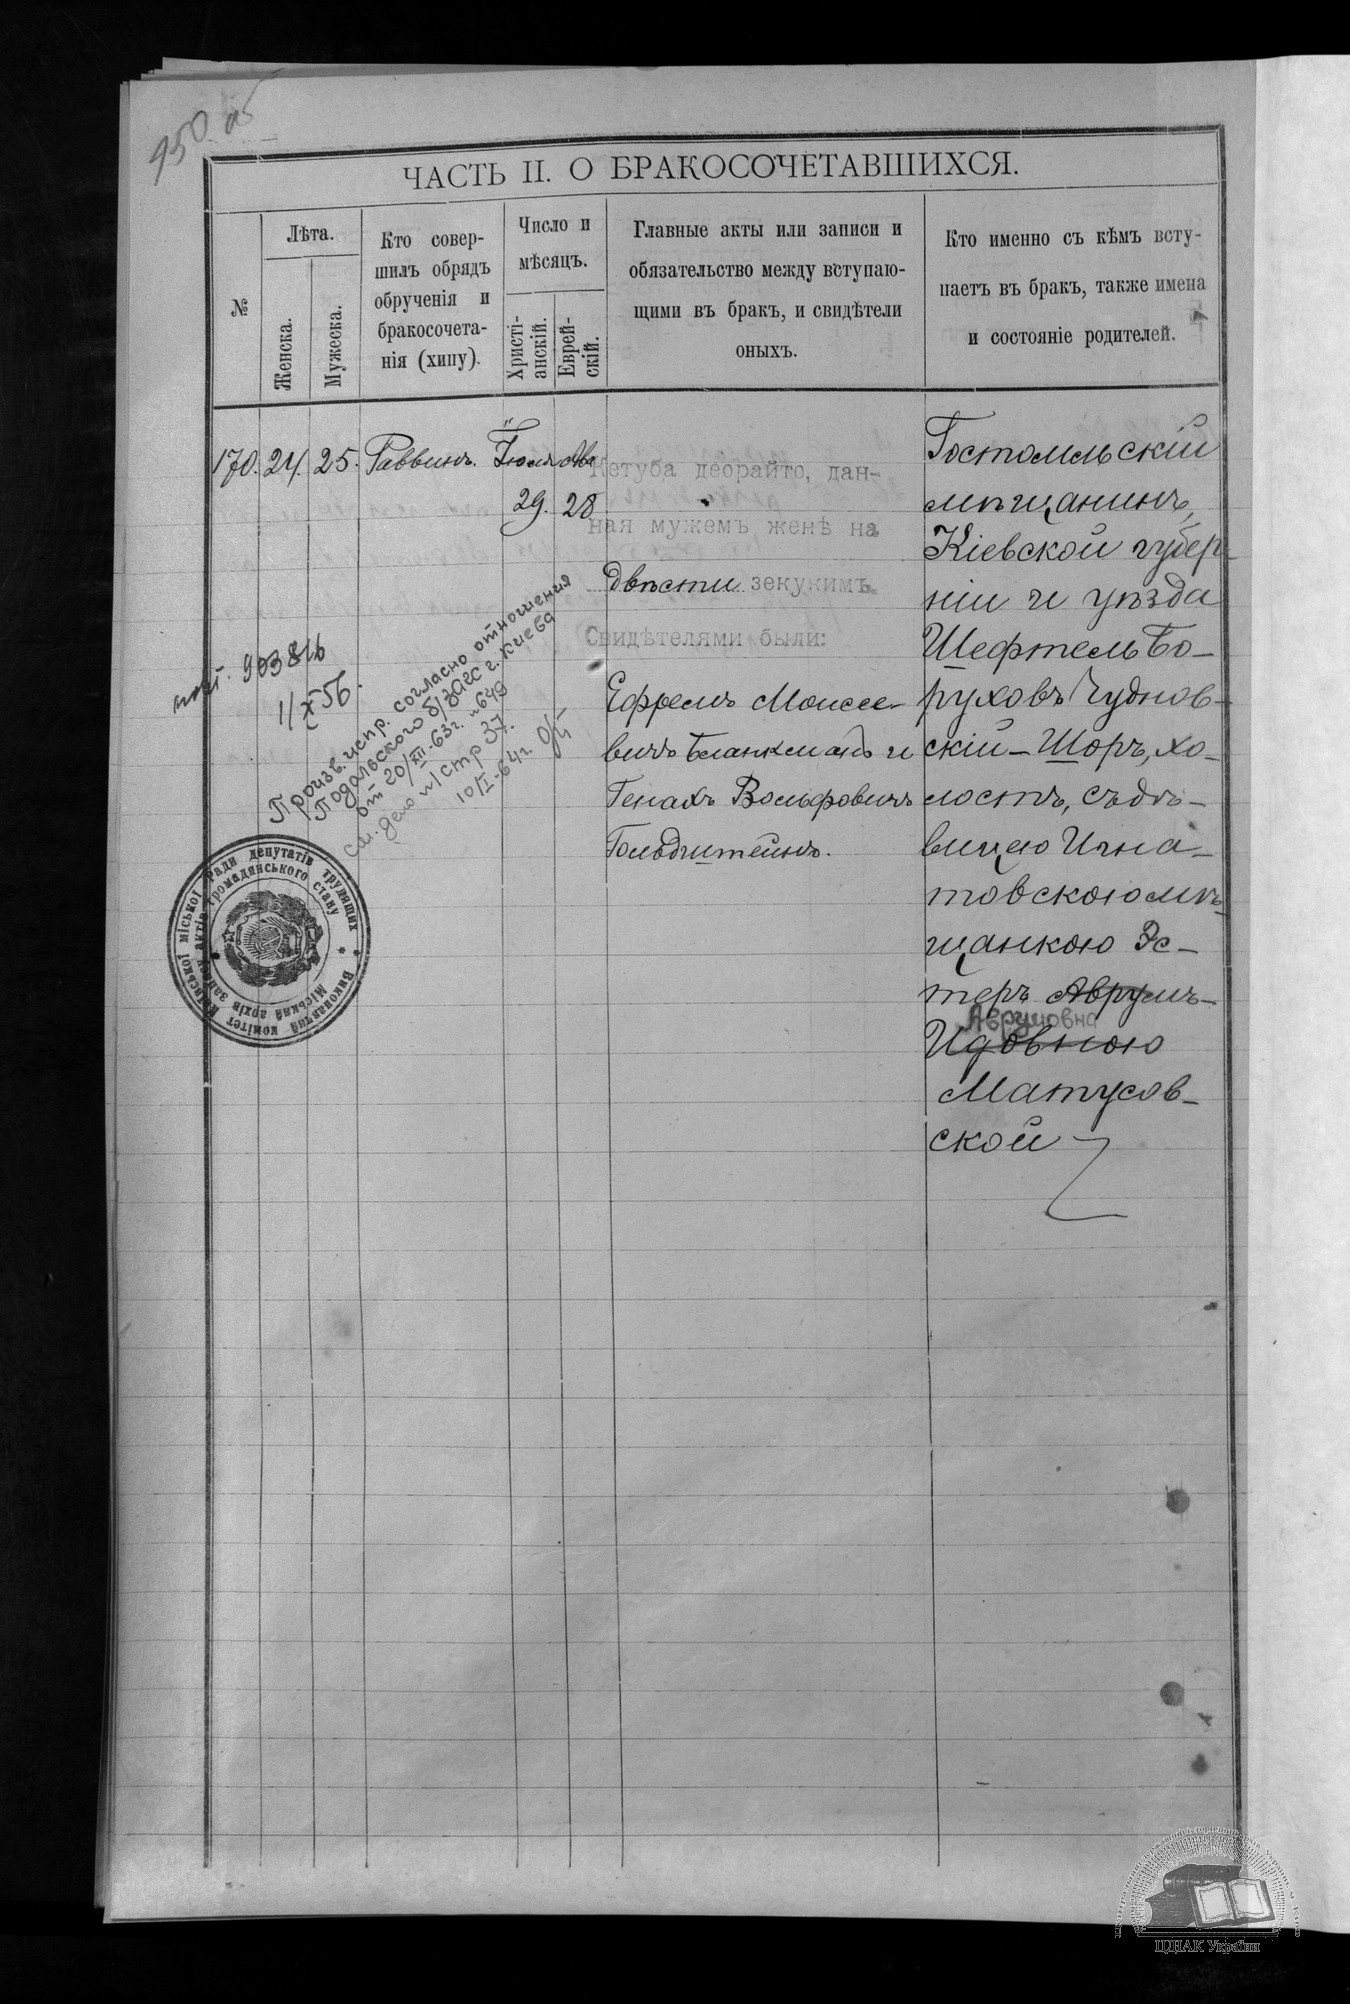 950 об
ЧАСТЬ II. О БРАКОСОЧЕТАВШИХСЯ.
№
Лѣта.
Женска.
Мужеска.
Кто совер-
шилъ обрядъ
обрученія и
бракосочета-
нія (хипу).
Число и
мѣсяцъ.
Христі-
анскій.
Еврей-
скій.
Главные акты или записи и
обязательство между вступаю-
щими въ бракъ, и свидѣтели
оныхъ.
Кто именно съ кѣмъ всту-
паетъ въ бракъ, также имена
и состояніе родителей.
170. 24. 25. Раввинъ. Іюля Ава
29. 28
Кетуба деорайто, дан-
ная мужемъ женѣ на
двѣсти зекукимъ.
Свидѣтелями были:
Ефремъ Моисее-
вичъ Бланкманъ и
Генахъ Вольфовичъ
Гольдштейнъ.
Гостомльскій
мѣщанинъ,
Кіевской губер-
ніи и уѣзда
Шефтель Бо-
руховъ Чуднов-
скій-Шоръ, хо-
лостъ, съ дѣ-
вицею Игна-
товскою мѣ-
щанкою Эс-
теръ Аврумъ-
Аврумовна
Идовною
Матусов-
ской
1/X 56.
Произв. испр. согласно отношения
Подольского б/загс г. Киева
от 20/XII-63г. №649
см. дело №1 стр 37.
10/I-64г.
Виконавчий комітет Київської міської Ради депутатів трудящих
Міський архів запису актів громадянського стану
ЦДІАК України